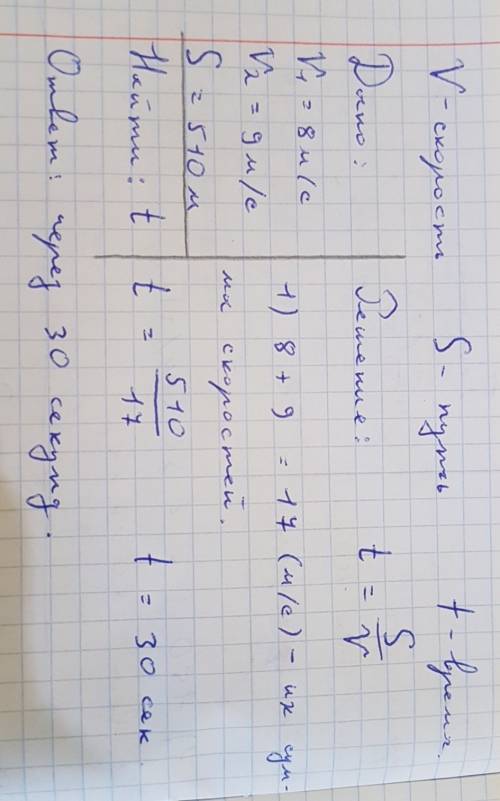 V - скорость S - путь t - время.
Дано: Решение: t = S/V
V₁ = 8 м/с
V₂ = 9 м/с 1) 8 + 9 = 17 (м/с) - их сум-
S = 510 м ма скоростей.
Найти: t t = 510/17 t = 30 сек
Ответ: через 30 секунд.